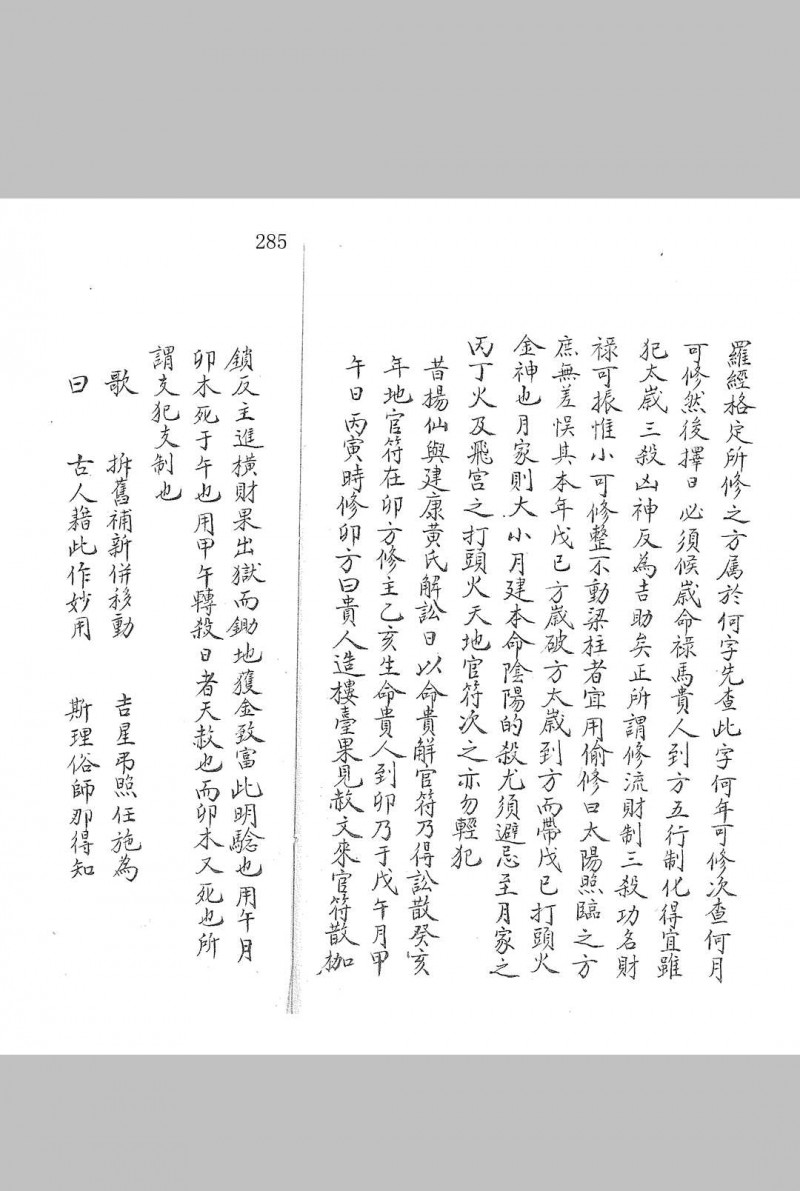 285
羅經格定所修之方屬於何字先查此字何年可修次查何月
可修然後擇日必須候歲命祿馬貴人到方五行制化得宜雖
犯太歲三殺凶神反為吉助矣正所謂修流財制三殺功名財
祿可振惟小可修整不動梁柱者宜用偷修曰太陽照臨之方
庶無差悞其本年戊己方歲破方太歲到方而帶戊己打頭火
金神也月家則大小月建本命陰陽的殺尤須避忌至月家之
丙丁火及飛宮之打頭火天地官符次之亦勿輕犯
昔楊仙與建康黃氏解訟日以命貴解官符乃得訟散癸亥
年地官符在卯方修主乙亥生命貴人到卯乃于戊午月甲
午日丙寅時修卯方曰貴人造樓臺果見赦文來官符散枷
鎖反主進橫財果出獄而鋤地獲金致富此明驗也用午月
卯木死于午也用甲午轉殺日者天赦也而卯木又死也所
謂支犯支制也
歌 拆舊補新併移動 吉星弔照任施為
曰 古人藉此作妙用 斯理俗師那得知